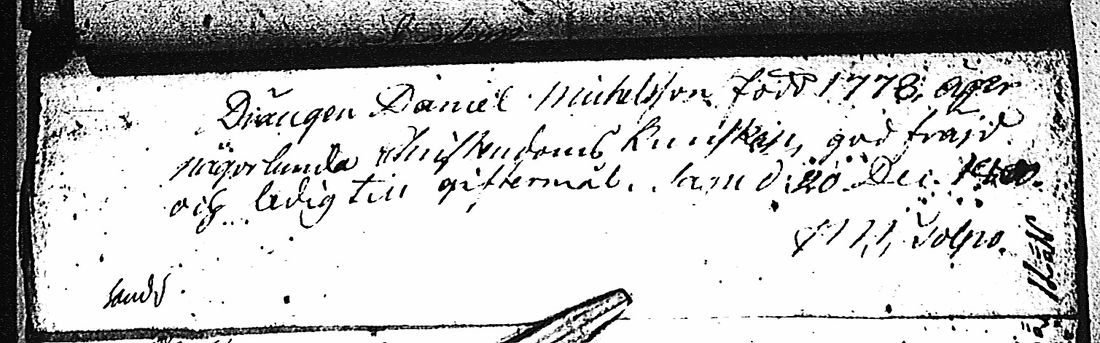 Drängen Daniel Michelsson född 1778, äger
någorlunda Christendoms kunskap, god fräjd
och ledig till giftermål. Sand d 20 Dec. 1800.
Tolpo.
Sand d